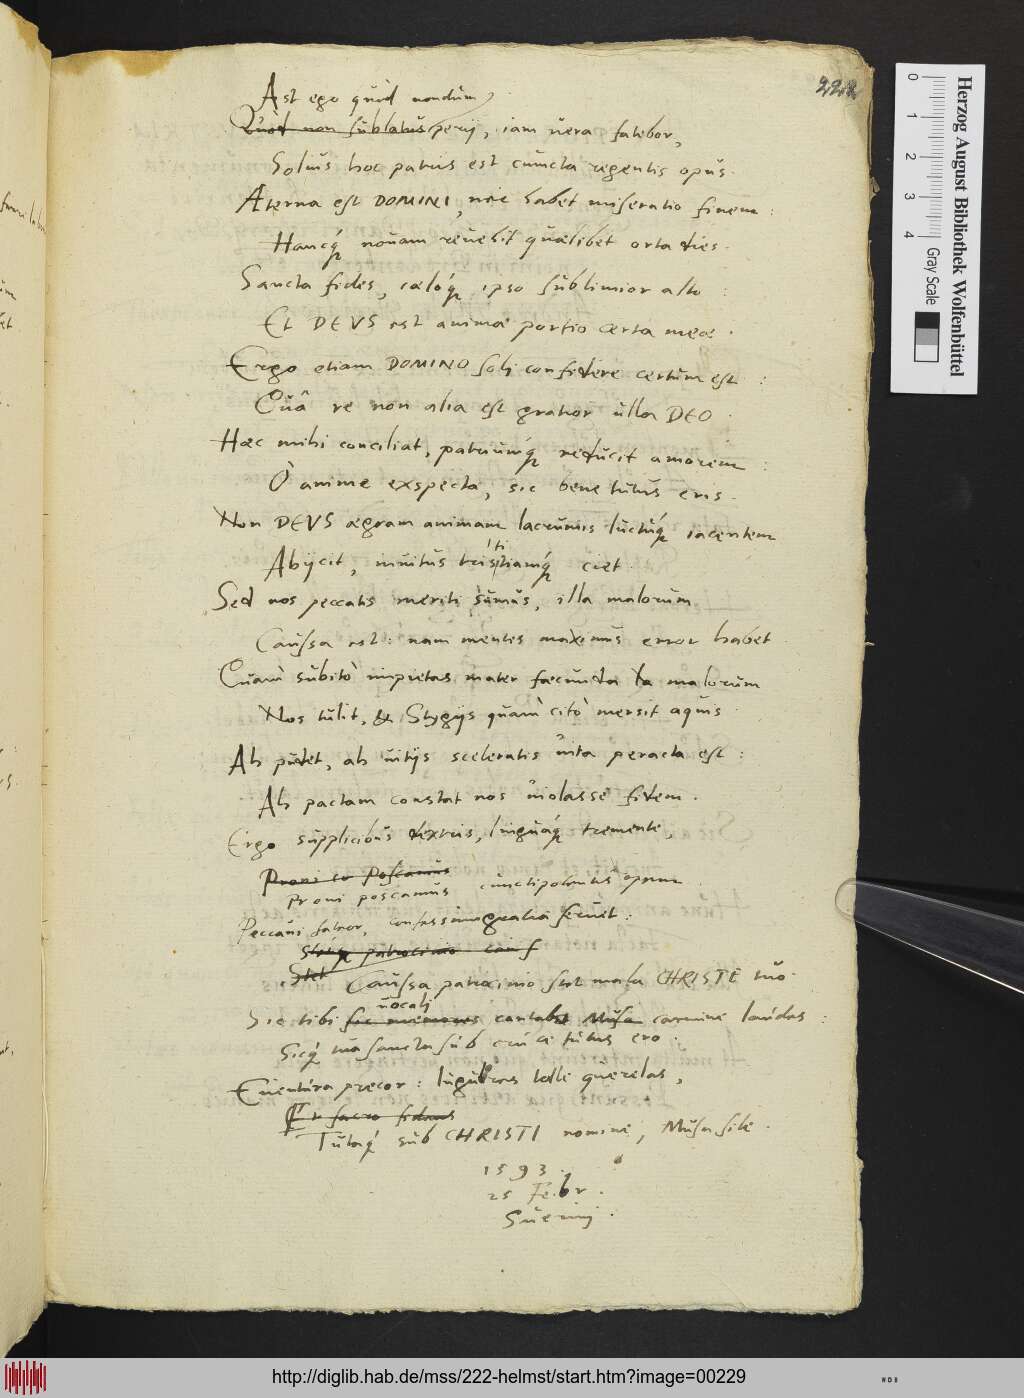 222
Ast ego quòd nondum
Quòd non sublatus perij, iam uera fatebor,
Solius hoc patris est cuncta regentis opus.
Æterna est DOMINI, nec habet miseratio finem:
Hancq́ue nouam reuehit quælibet orta dies.
Sancta fides, cæloq́ue ipso sublimior alto:
Et DEVS est animæ portio certa meæ.
Ergo etiam DOMINO soli confidere certum est:
Quâ re non alia est gratior ulla DEO.
Hæc mihi conciliat, patriumq́ue reducit amorem:
O anime exspecta, sic bene tutus eris.
Non DEVS ægram animam lacrumis luctuq́ue iacentem
Abijcit, inuitus tristitiamq́ue ciet.
Sed nos peccatis meriti sumus, illa malorum
Caussa est: nam mentes maximus error habet.
Quàm subitò impietas mater fæcunda malorum
Nos tulit, & Stygijs quàm citò mersit aquis.
Ah pudet, ah uitijs sceleratis uita peracta est:
Ah pactam constat nos uiolasse fidem.
Ergo supplicibus dextris, linguaq́ue tremente,
Proni poscamus
Proni poscamus cunctipotentis opem.
Peccaui fateor,
patrocinio
Stet
Caussa patrocinio stet mala CHRISTE tuo.
uocali
Sic tibi cantabit Musa carmine laudes:
Sicq́ue tua sancta sub cruce tutus ero.
Euentura precor: lugubres tolle querelas,
Et sacro
Tutaq́ue sub CHRISTI nomine, Musa sile.
1593.
25 Febr.
Suerini.
Herzog August Bibliothek Wolfenbüttel
0 1 2 3 4
Gray Scale
http://diglib.hab.de/mss/222-helmst/start.htm?image=00229